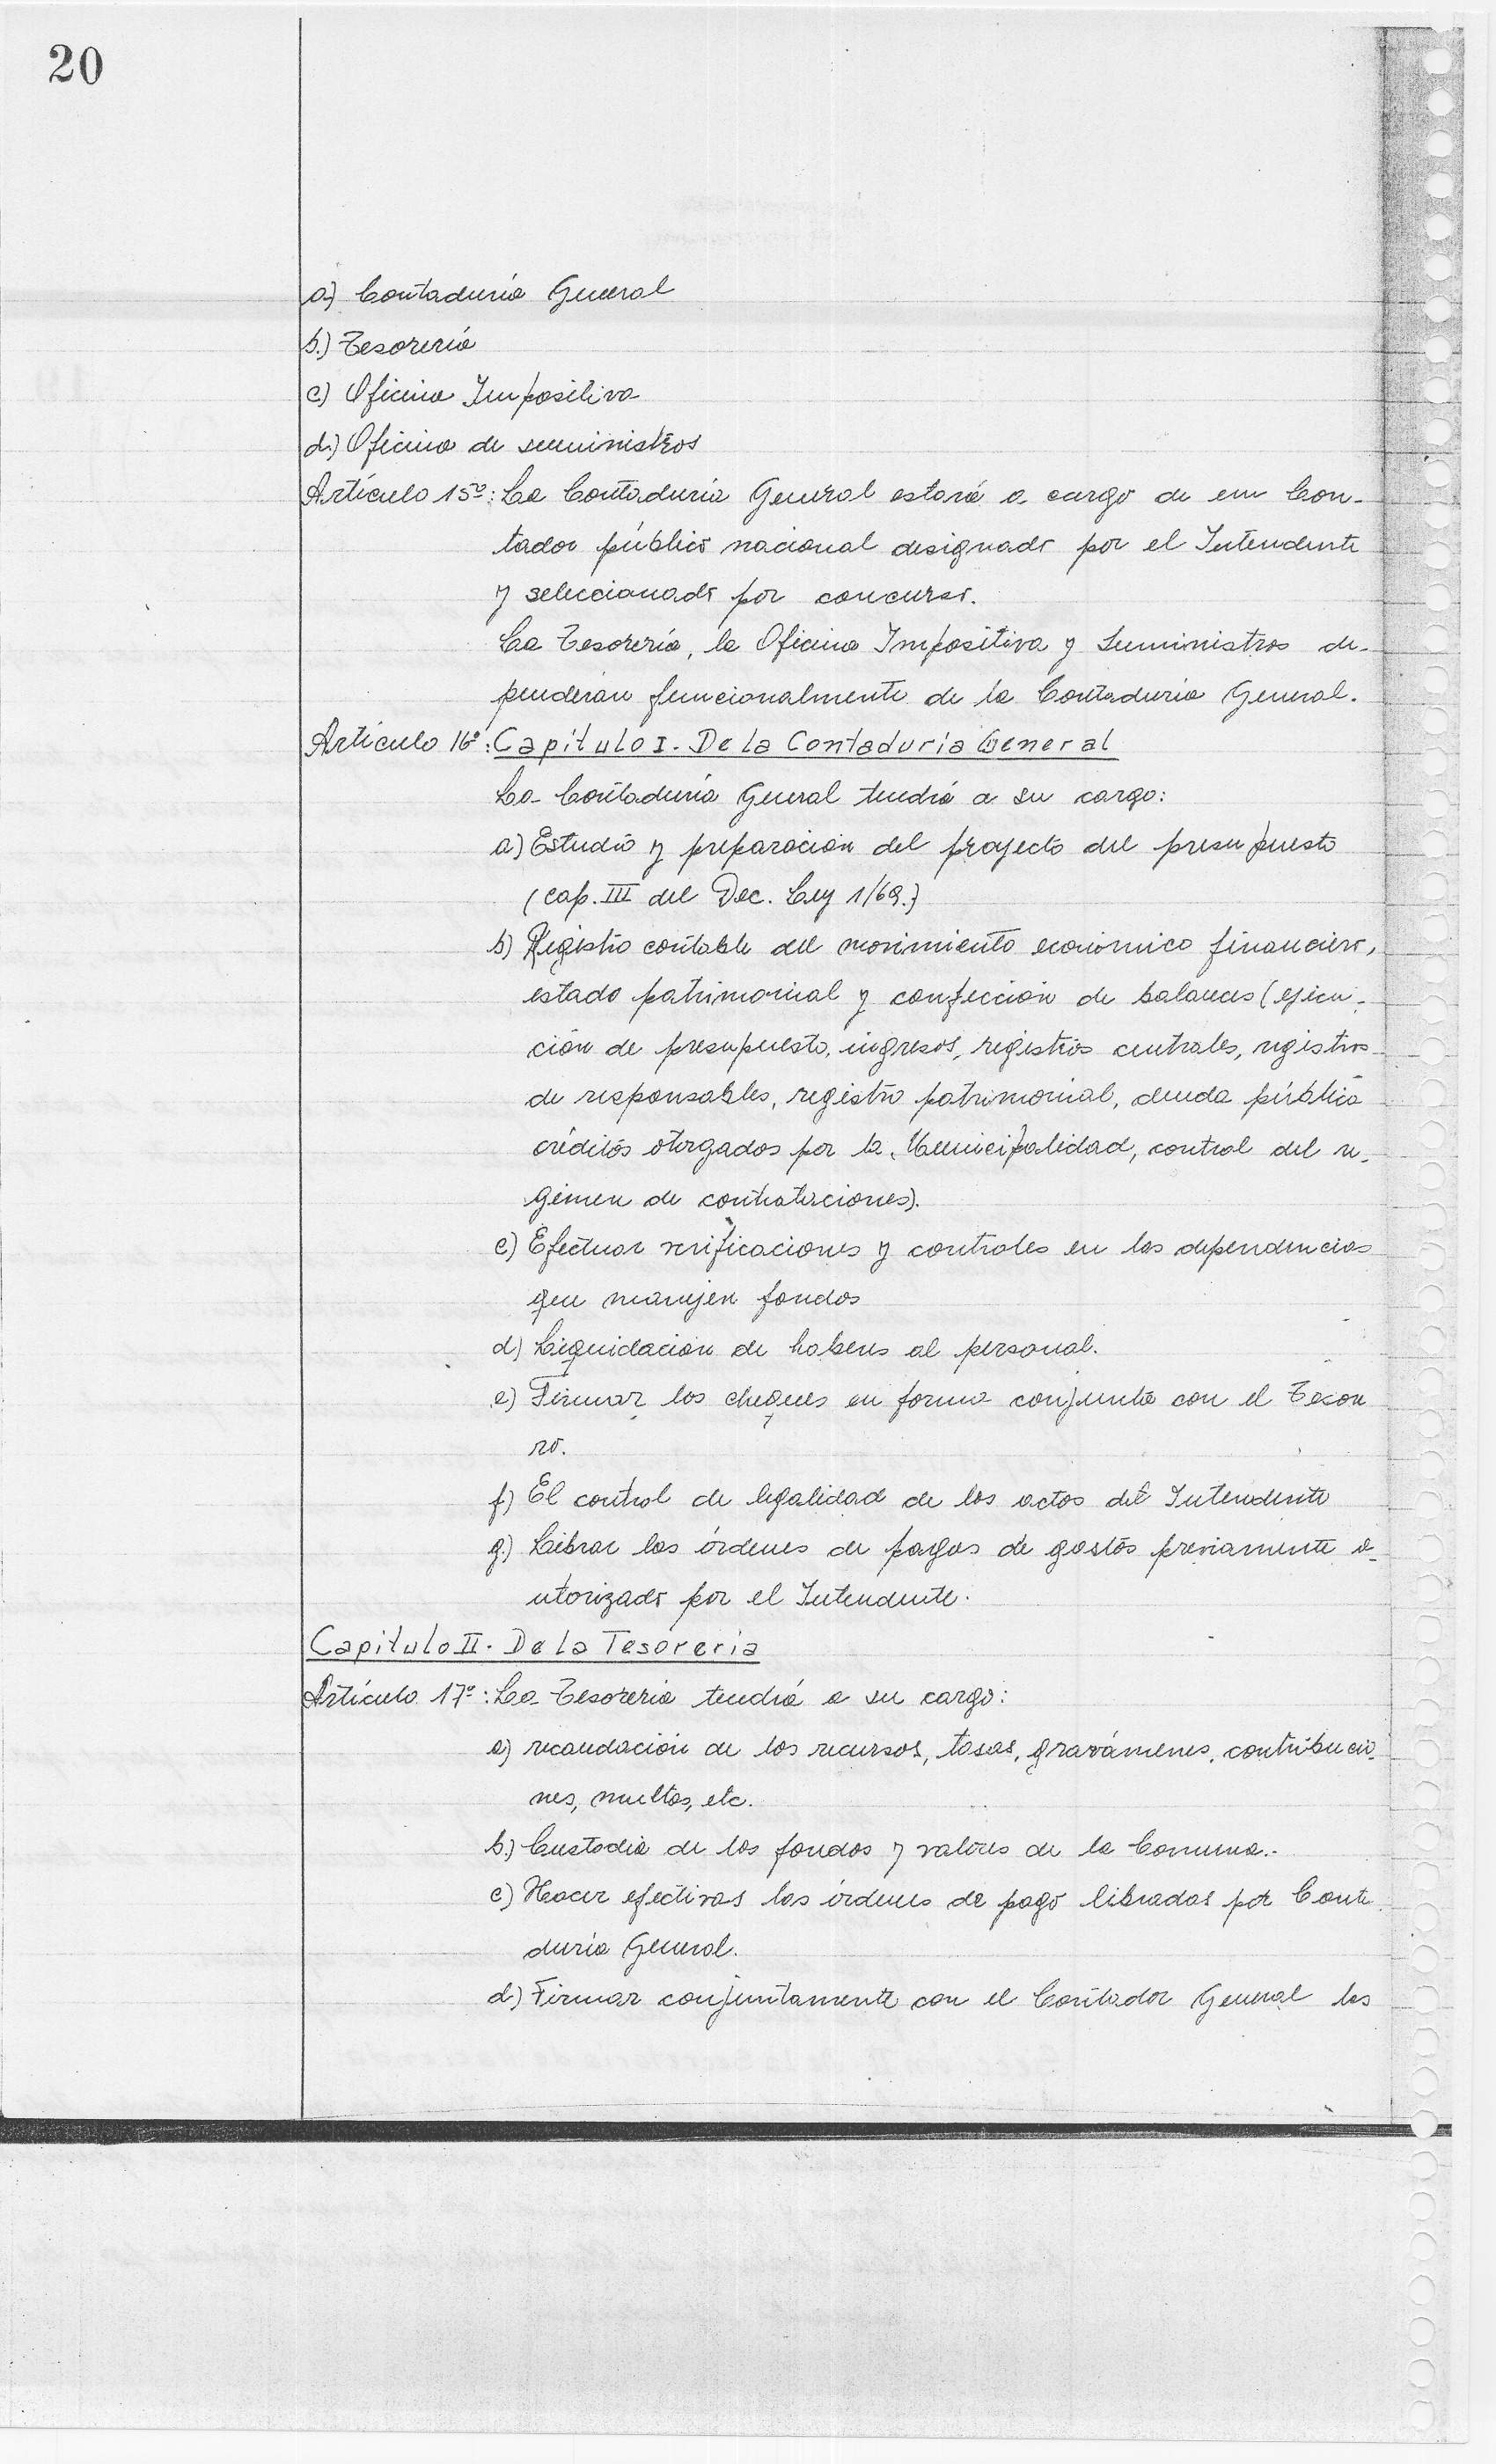 20
a) Contaduría General
b.) Tesorería
c) Oficina Impositiva
d.) Oficina de suministros
Artículo 15º: La Contaduría General estará a cargo de un Con-
tador público nacional designado por el Intendente
y seleccionado por concurso.
La Tesorería, la Oficina Impositiva y Suministros de-
penderán funcionalmente de la Contaduría General.
Artículo 16º: Capítulo I. De la Contaduría General
La Contaduría General tendrá a su cargo:
a) Estudio y preparación del proyecto del presupuesto
(cap. III del Dec. Ley 1/69.)
b) Registro contable del movimiento económico financiero,
estado patrimonial y confección de balances (ejecu-
ción de presupuesto, ingresos, registros centrales, registros
de responsables, registro patrimonial, deuda pública
créditos otorgados por la Municipalidad, control del re-
gimen de contrataciones).
c) Efectuar verificaciones y controles en las dependencias
que manejen fondos
d) Liquidación de haberes al personal.
e) Firmar los cheques en forma conjunta con el Tesore
ro.
f) El control de legalidad de los actos del Intendente
g.) Librar las órdenes de pagos de gastos previamente a-
utorizado por el Intendente.
Capítulo II. De la Tesorería
Artículo 17º: La Tesorería tendrá a su cargo:
a) recaudación de los recursos, tasas, gravámenes, contribucio-
nes, multas, etc.
b.) Custodia de los fondos y valores de la Comuna..
c) Hacer efectivas las órdenes de pago libradas por Conta
duría General.
d.) Firmar conjuntamente con el Contador General los